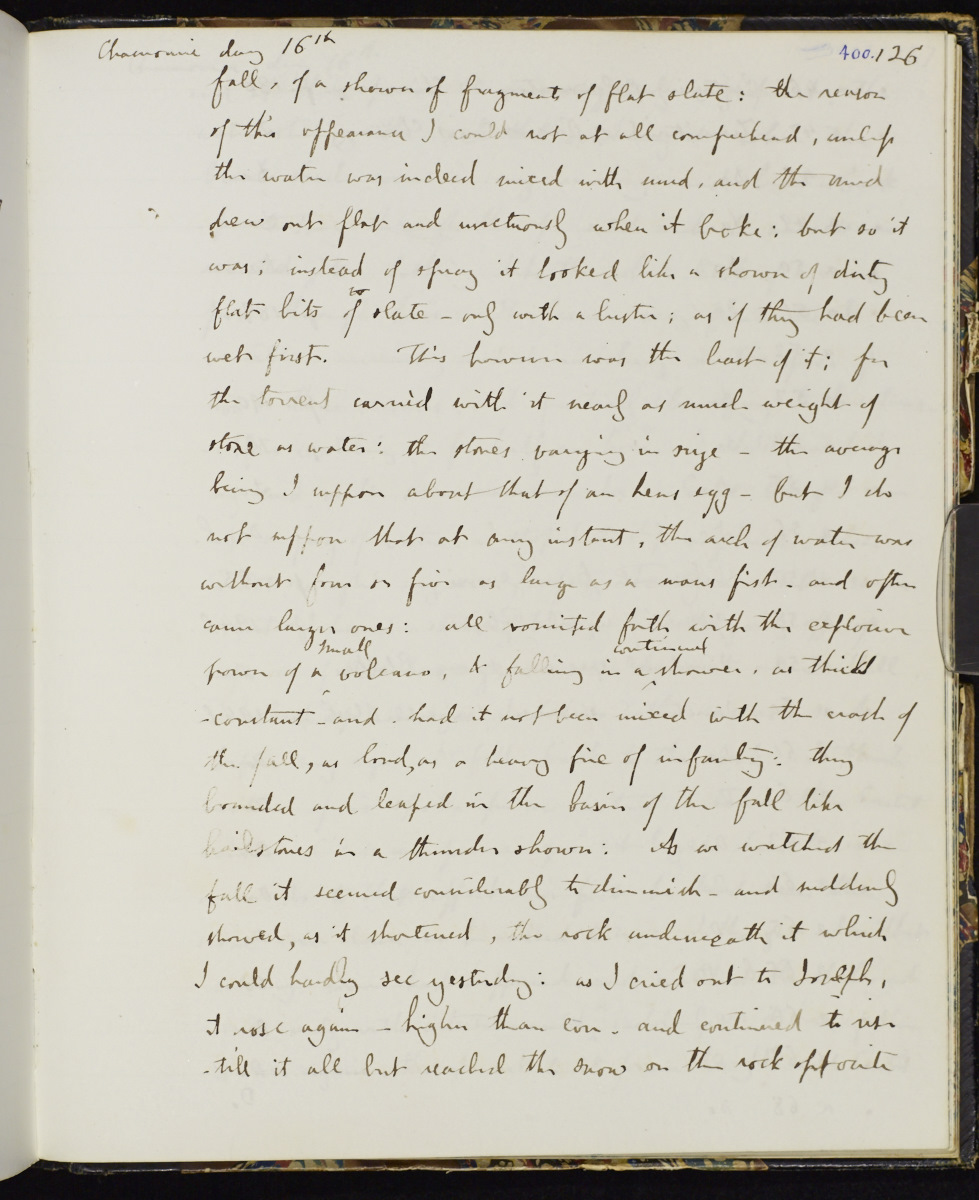 Chamonix day 16th 400. 126
fall, of a shower of fragments of flat slate: the reason
of this appearance I could not at all comprehend, unless
the water was indeed mixed with mud, and the mud
drew out flat and unctuously when it broke: but so it
was; instead of spray it looked like a shower of dirty
flat bits of slate - only with a lustre; as if they had been
wet first. This however was the least of it; for
the torrent carried with it nearly as much weight of
stone as water: the stones varying in size - the average
being I suppose about that of an hens egg - but I do
not suppose that at any instant, the arch of water was
without four or five as large as a mans fist - and often
came larger ones: all vomited forth with the explosive
power of a small volcano, & falling in a continued shower, as thick
- constant - and - had it not been mixed with the crash of
the fall, as loud, as a heavy fire of infantry: they
bounded and leaped in the basin of the fall like
hailstones in a thunder shower: As we watched the
fall it seemed considerably to diminish - and suddenly
showed, as it shortened, the rock underneath it which
I could hardly see yesterday: as I cried out to Joseph,
it rose again - higher than ever - and continued to rise
- till it all but reached the snow on the rock opposite